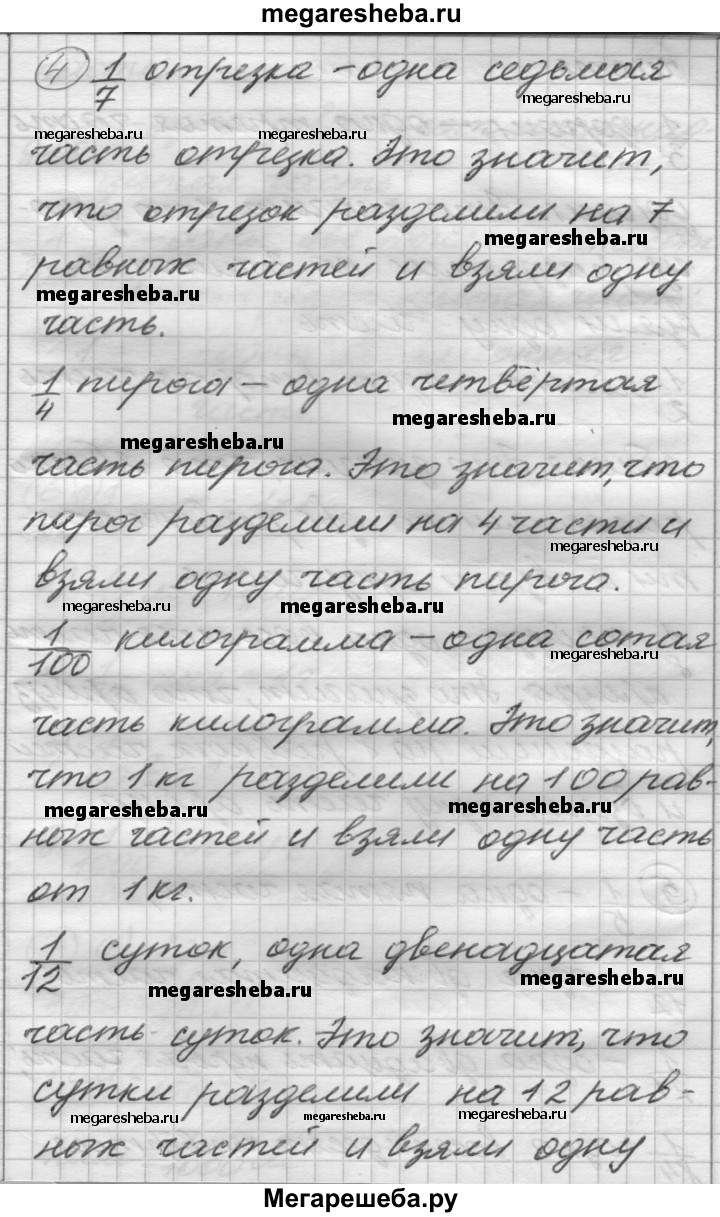 megaresheba.ru
④ 1/7 отрезка – одна седьмая
megaresheba.ru
megaresheba.ru megaresheba.ru
часть отрезка. Это значит,
что отрезок разделили на 7
megaresheba.ru
равных частей и взяли одну
megaresheba.ru
часть.
1/4 пирога – одна четвёртая
megaresheba.ru
megaresheba.ru
часть пирога. Это значит, что
пирог разделили на 4 части и
megaresheba.ru
взяли одну часть пирога.
megaresheba.ru megaresheba.ru
1/100 килограмма – одна сотая
megaresheba.ru
часть килограмма. Это значит,
что 1 кг разделили на 100 рав-
megaresheba.ru megaresheba.ru
ных частей и взяли одну часть
от 1 кг.
1/12 суток, одна двенадцатая
megaresheba.ru megaresheba.ru
часть суток. Это значит, что
сутки разделили на 12 рав-
megaresheba.ru megaresheba.ru megaresheba.ru
ных частей и взяли одну
Мегарешеба.ру